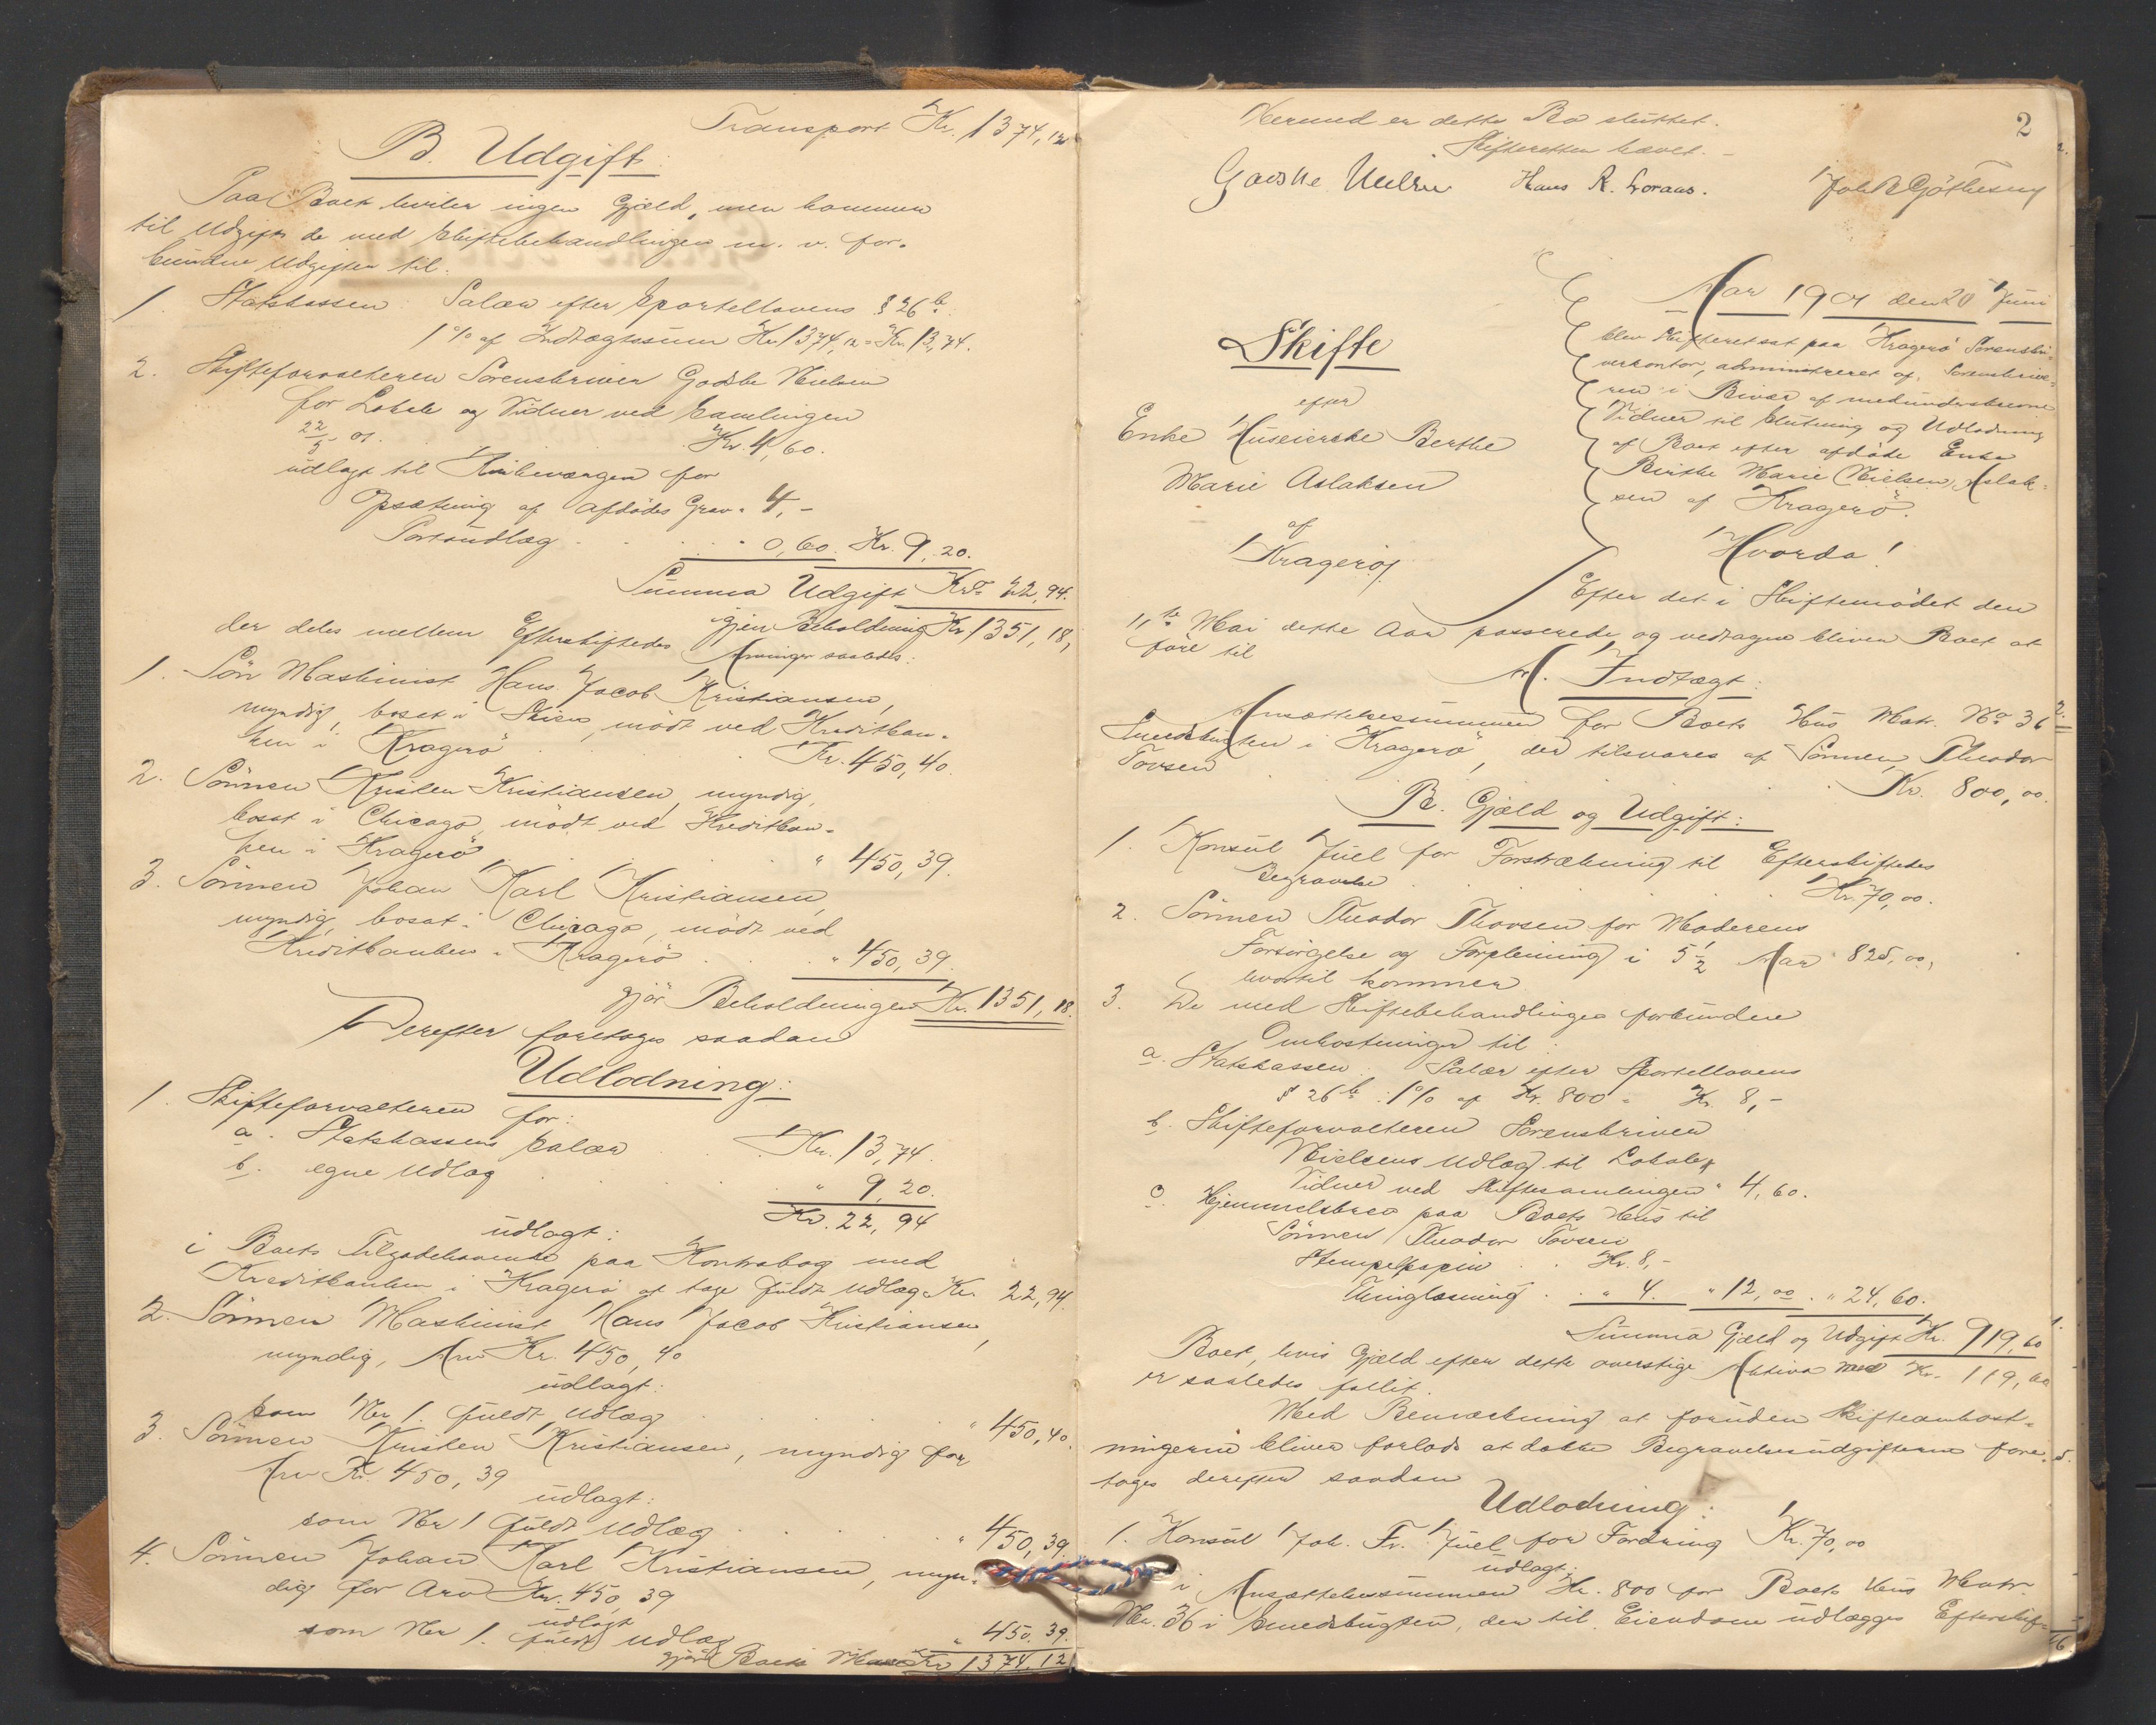 Transport Kr. 1374,12
B. Udgift:
Paa Boet hviler ingen Gjæld, men kommer
til Udgift de med Skiftebehandlingen m. v. for-
bundne Udgifter til:
1. Statskassen: Salær efter Sportellovens § 26 b:
1 % af Indtægtssum Kr 1374,12 = Kr. 13,74.
2. Skifteforvalteren Sorenskriver Godske Nielsen
for Lokale og Vidner ved Samlingen
22/5 01. Kr. 4,60.
udlagt til Kirkevergen for
Opsætning af afdødes Grav " 4,-
Portoudlæg " 0,60. Kr. 9,20.
Summa Udgift Kr. 22,94.
igjen Beholdning Kr 1351,18,
der deles mellem Efterskiftedes Arvinger saaledes:
1. Søn Maskinist Hans Jacob Kristiansen,
myndig, bosat i Skien, mødt ved Kreditban-
ken i Kragerø Kr. 450,40.
2. Sønnen Kristen Kristiansen, myndig,
bosat i Chicago, mødt ved Kreditban-
ken i Kragerø " 450,39.
3. Sønnen Johan Karl Kristiansen,
myndig, bosat i Chicago, mødt ved
Kreditbanken i Kragerø " 450,39.
gjør Beholdningen Kr. 1351,18.
Derefter foretages saadan
Udlodning:
1. Skifteforvalteren for:
a. Statskassens Salær Kr. 13,74.
b. egne Udlæg " 9,20.
Kr. 22,94
udlagt:
i Boets Tilgodehavende paa Kontrabog med
Kreditbanken i Kragerø at tage fuldt Udlæg Kr. 22,94.
2. Sønnen Maskinist Hans Jacob Kristiansen,
myndig, Arv Kr. 450,40
udlagt:
som Nr 1. fuldt Udlæg " 450,40.
3. Sønnen Kristen Kristiansen, myndig for
Arv Kr. 450,39
udlagt:
som Nr 1 fuldt Udlæg " 450,39.
4. Sønnen Johan Karl Kristiansen, myn-
dig for Arv Kr. 450,39
udlagt
som Nr 1. fuldt Udlæg " 450.39.
gjør Boets Masse Kr 1374.12
2
Hermed er dette Bo sluttet.
Skifteretten hævet. -
Godske Nielsen Hans R. Joh
Skifte
efter
Enke Huseierske Berthe
Marie Aslaksen
af
Kragerø
Aar 1901 den 20 Juni
blev Skifteret sat paa Kragerø Sorenskri-
verkontor, administreret af Sorenskrive-
ren i Bivær af medunderskrevne
Vidner til Slutning og Udlodning
af Boet efter afdøde Enke
Birthe Marie Nielsen Aslak-
sen af Kragerø.
Hvorda!
Efter det i Skiftemødet den
11te Mai dette Aar passerede og vedtagne bliver Boet at
føre til
A. Indtægt:
Ansættelsessummen for Boets Hus Matr. No 36
Smedsbugten i Kragerø, der tilsvares af Sønnen, Theodor
Tovsen Kr. 800,00.
B. Gjæld og Udgift:
1. Konsul Juel for Forstrækning til Efterskiftedes
Begravelse Kr. 70,00.
2. Sønnen Theodor Thovsen for Moderens
Forsørgelse og Forpleining i 5 1/2 Aar 825,00,
hvortil kommer
3. De med Skiftebehandlingen forbundne
Omkostninger til:
a. Statskassen: Salær efter Sportellovens
§ 26 b: 1 % af Kr. 800 = Kr. 8,-
b. Skifteforvalteren Sorenskriver
Nielsens Udlæg til Lokale &
Vidner ved Skiftesamlingen " 4,60.
c. Hjemmelsbrev paa Boets Hus til
Sønnen Theodor Tovsen
Stempelpapir Kr. 8,-
Thinglæsning " 4. " 12,00. " 24,60.
Summa Gjæld og Udgift Kr. 919,60
Boet, hvis Gjæld efter dette overstige Aktiva med Kr. 119,60
er saaledes fallit.
Med Bemærkning at foruden Skifteomkost-
ningerne bliver forlods at dække Begravelsesudgifterne fore-
tages derefter saadan
Udlodning:
1. Konsul Joh. Fr. Juel for Fordring Kr. 70,00
udlagt:
i Ansættelsessummen Kr. 800 for Boets Hus Matr
Nr. 36 i Smedsbugten, der til Eiendom udlægges Efterskif-